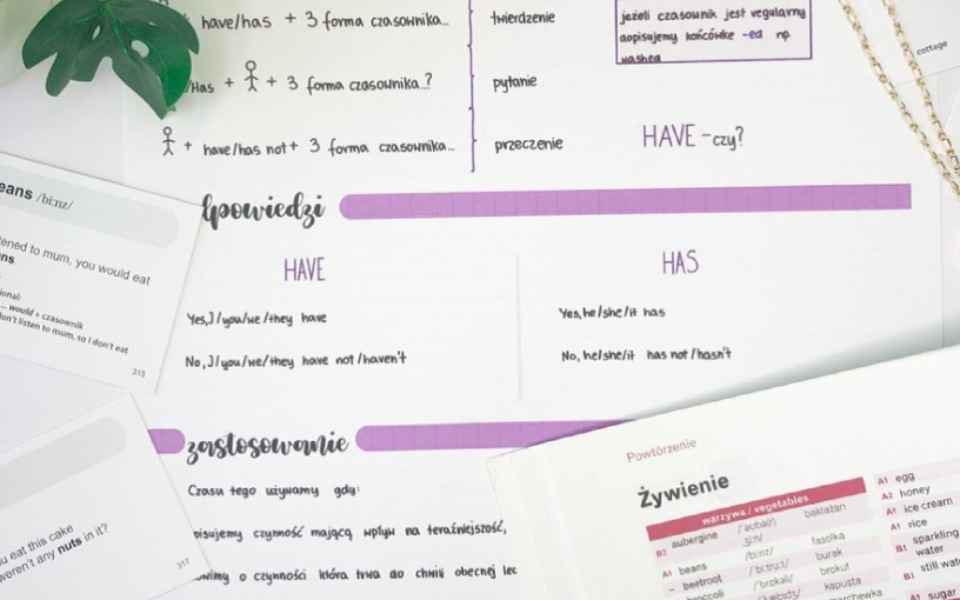 have/has + 3 forma czasownika...
twierdzenie
jeżeli czasownik jest regularny
dopisujemy końcówkę -ed np
washed
cottage
Has + + 3 forma czasownika..?
pytanie
+ have/has not + 3 forma czasownika...
przeczenie
HAVE - czy?
dpowiedzi
HAVE
HAS
Yes, I/you/we/they have
Yes, he/she/it has
No, I/you/we/they have not/haven't
No, he/she/it has not/hasn't
zastosowanie
Czasu tego używamy gdy:
pisujemy czynność mającą wpływ na teraźniejszość,
o czynności która trwa do chwili obecnej lec
eans /biːnz/
tened to mum, you would eat
ns.
ional:
... would + czasownik
don't listen to mum, so I don't eat
315
u eat this cake
weren't any nuts in it?
317
Powtórzenie
Żywienie
warzywa / vegetables
B2 aubergine bakłażan
A1 beans /biːnz/ fasolka
– beetroot /ˈbiːtruːt/ burak
broccoli /ˈbrɒkəli/ brokuł
kapusta
marchewka
A1 egg
A2 honey
A1 ice cream
A1 rice
B1 sparkling
water
B1 still wat
A1 sugar